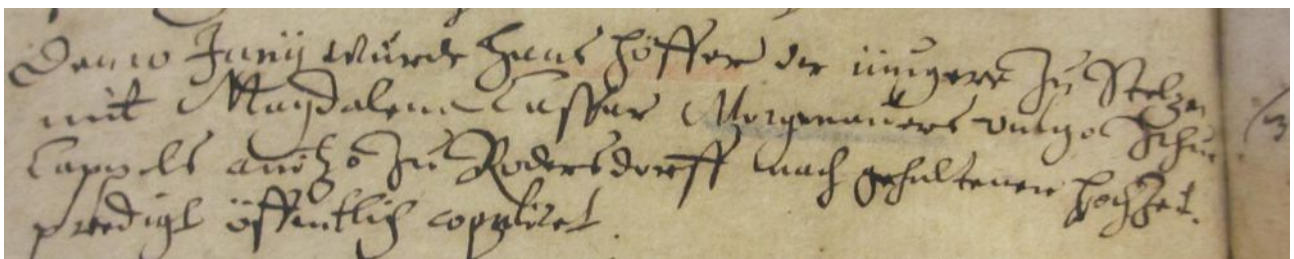 Den 10 Junij wurde Hans Höffer der jüngere zu Stelzen
mit Magdalena Casspar Morgenauers vulgo Schu
Cappels zu Rodersdorff nach gehaltener Hochzeit
predigt öffentlich copuliret.